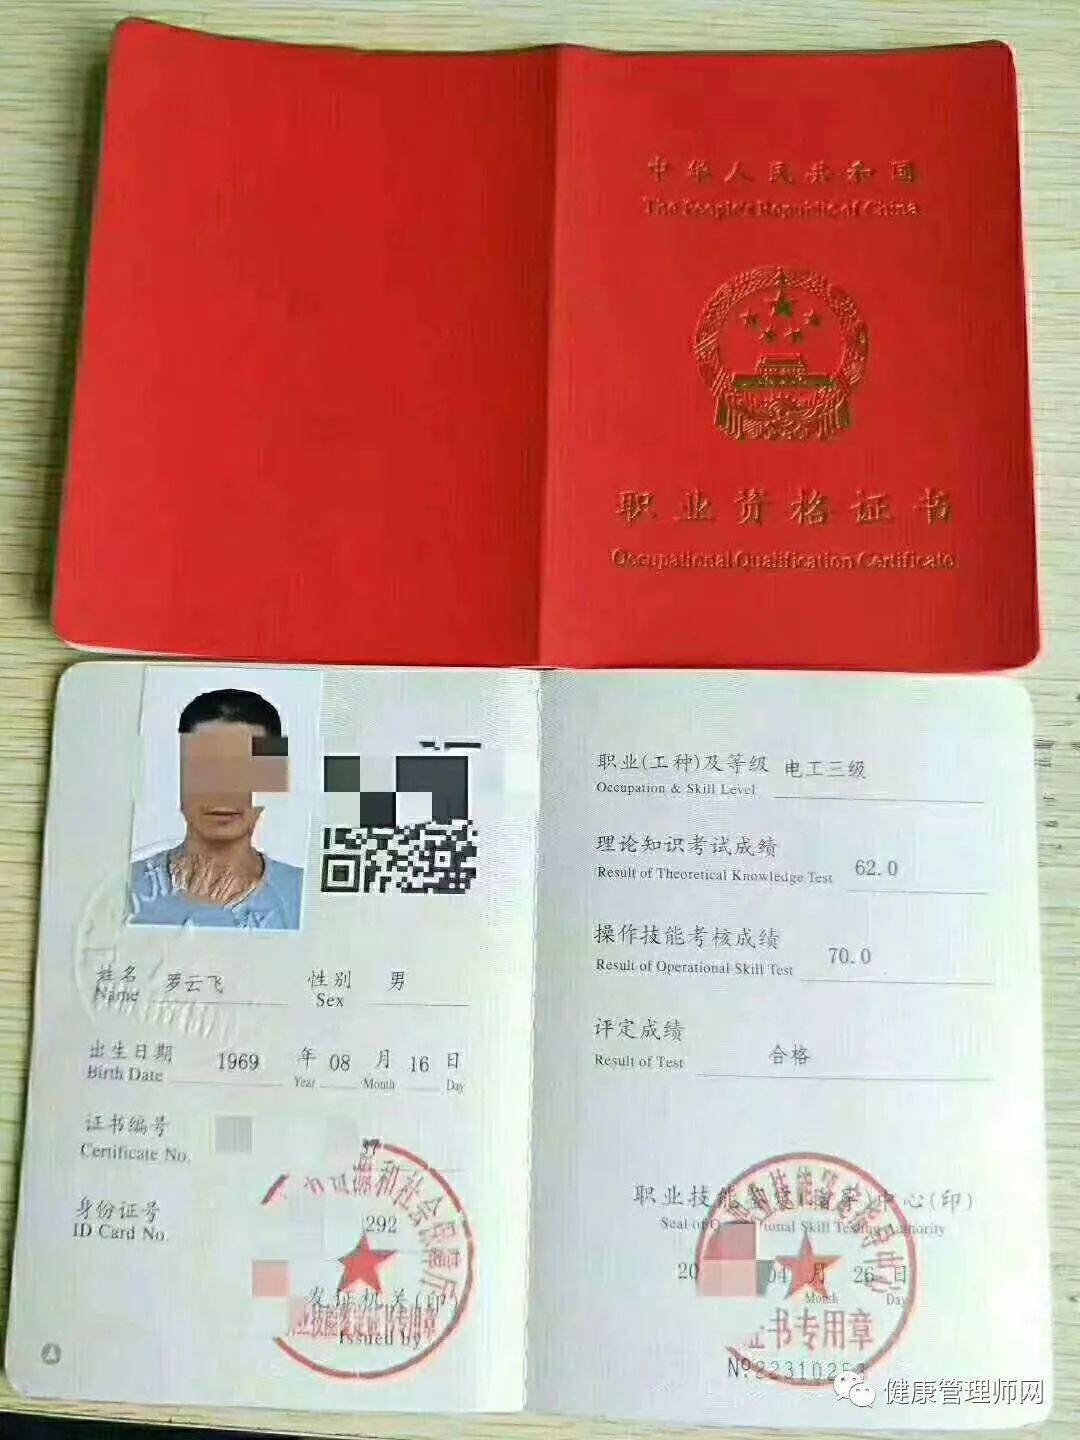 中华人民共和国
The People's Republic of China
职业资格证书
Occupational Qualification Certificate
姓名 罗云飞 性别 男
Name Sex
出生日期 1969 年 08 月 16 日
Birth Date Year Month Day
证书编号
Certificate No. 37
身份证号
ID Card No. 292
发证机关(印)
Issued by
和社会保障厅
业技能鉴定证书专用章
职业(工种)及等级 电工三级
Occupation & Skill Level
理论知识考试成绩
Result of Theoretical Knowledge Test 62.0
操作技能考核成绩
Result of Operational Skill Test 70.0
评定成绩
Result of Test 合格
职业技能鉴定(指导)中心(印)
Seal of Occupational Skill Testing Authority
20 04 月 26 日
Month Day
证书专用章
№22310253
健康管理师网